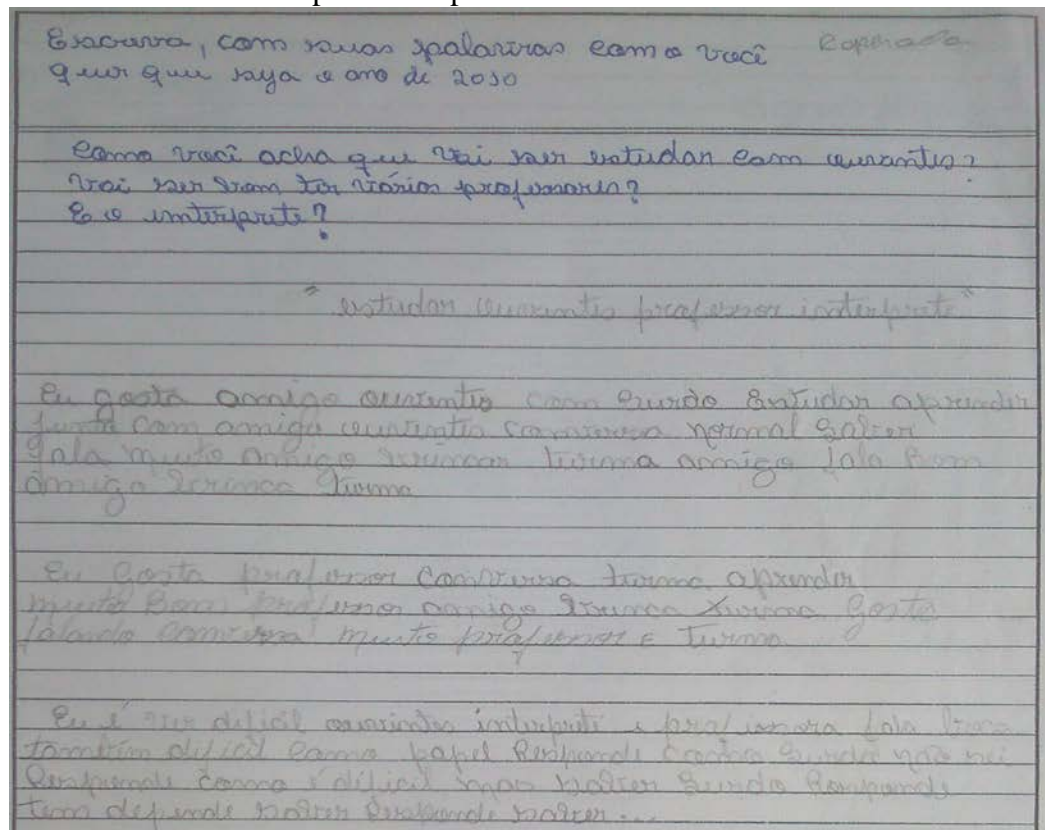 Escreva, com suas palavras como você
quer que seja o ano de 2010
Como você acha que vai ser estudar com ouvintes?
Vai ser bom ter vários professores?
E o interprete?
" estudar ouvintes professor interprete"
Eu gosta amigo ouvintes com surdo Estudar aprender
junto com amigo ouvintes conversa normal saber
fala muito amigo brincar turma amigo fala Bom
amigo brinca turma
Eu Gosta professor conversa turma aprender
muito Bom professor amigo brinca turma Gosta
falando conversa muito professor e turma
Eu é difícil ouvintes interprete e professora fala
também difícil como papel Responde surdo não sei
Responde como é difícil mas saber surdo Responde
tem depende saber Responde saber...